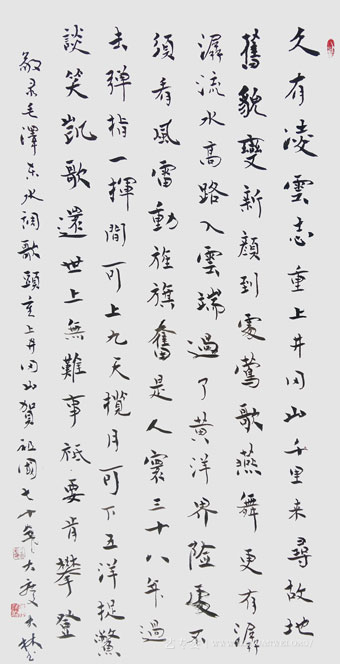 久有凌雲志重上井冈山千里来尋故地
舊貌變新顔到處鶯歌燕舞更有潺
潺流水高路入雲端過了黄洋界险處不
須看風雷動旌旗奮是人寰三十八年過
去彈指一揮間可上九天攬月可下五洋捉鱉
談笑凱歌還世上無難事祇要肯攀登
敬录毛澤东水調歌頭重上井冈山賀祖國七十年大慶